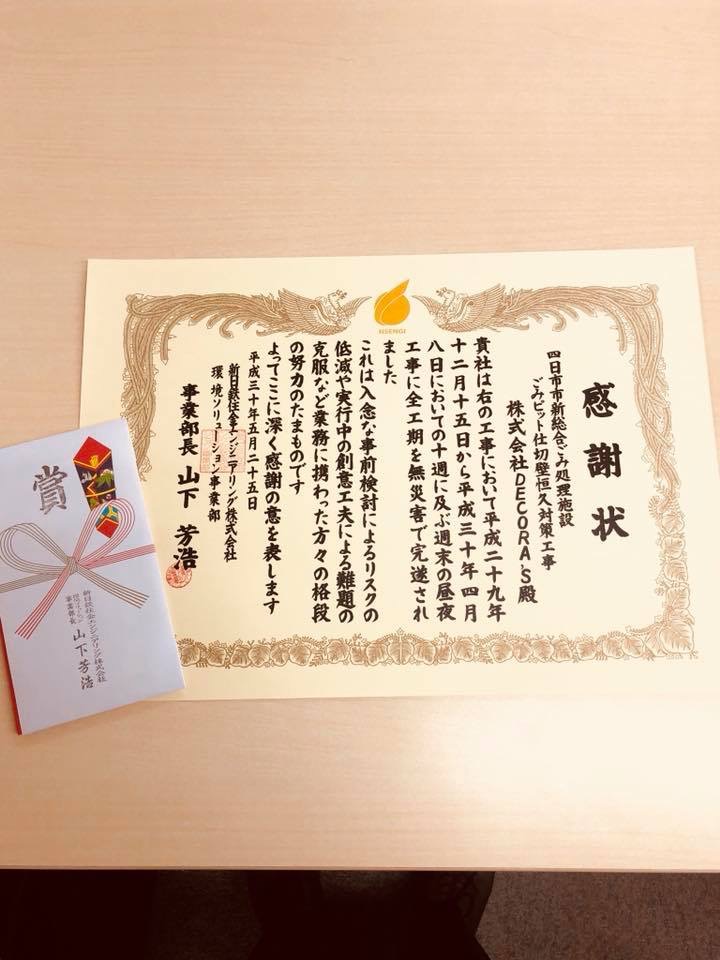 NSENGI
感謝状
四日市市新総合ごみ処理施設
ごみピット仕切壁恒久対策工事
株式会社DECORA'S殿
貴社は右の工事において平成二十九年
十二月十五日から平成三十年四月
八日においての十週に及ぶ週末の昼夜
工事に全工期を無災害で完遂され
ました
これは入念な事前検討によるリスクの
低減や実行中の創意工夫による難題の
克服など業務に携わった方々の格段
の努力のたまものです
よってここに深く感謝の意を表します
平成三十年五月二十五日
新日鉄住金エンジニアリング株式会社
環境ソリューション事業部
事業部長 山下 芳浩
賞
新日鉄住金エンジニアリング株式会社
事業部長 山下芳浩